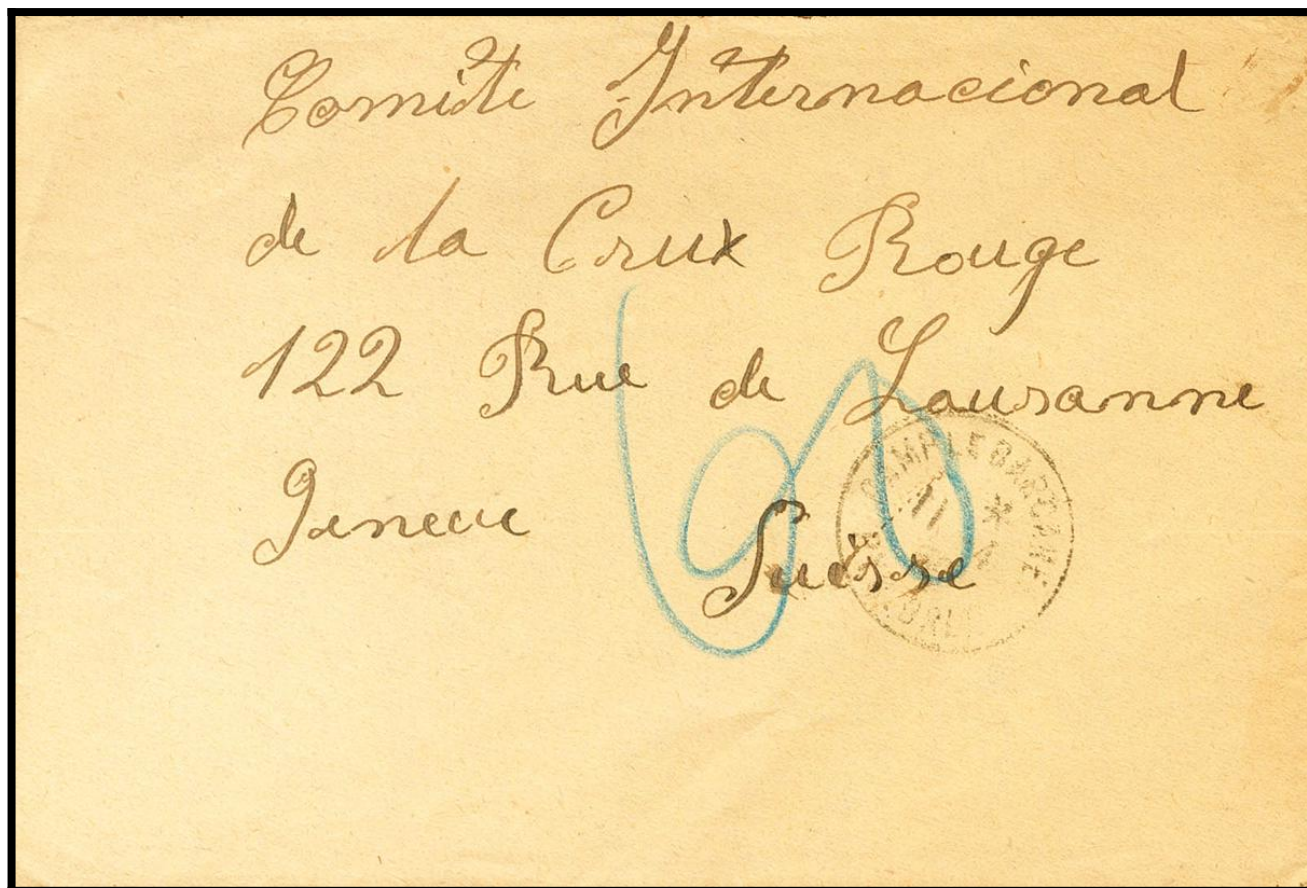 Comite Internacional
de la Crux Rouge
122 Rue de Lausanne
Geneve Suisse